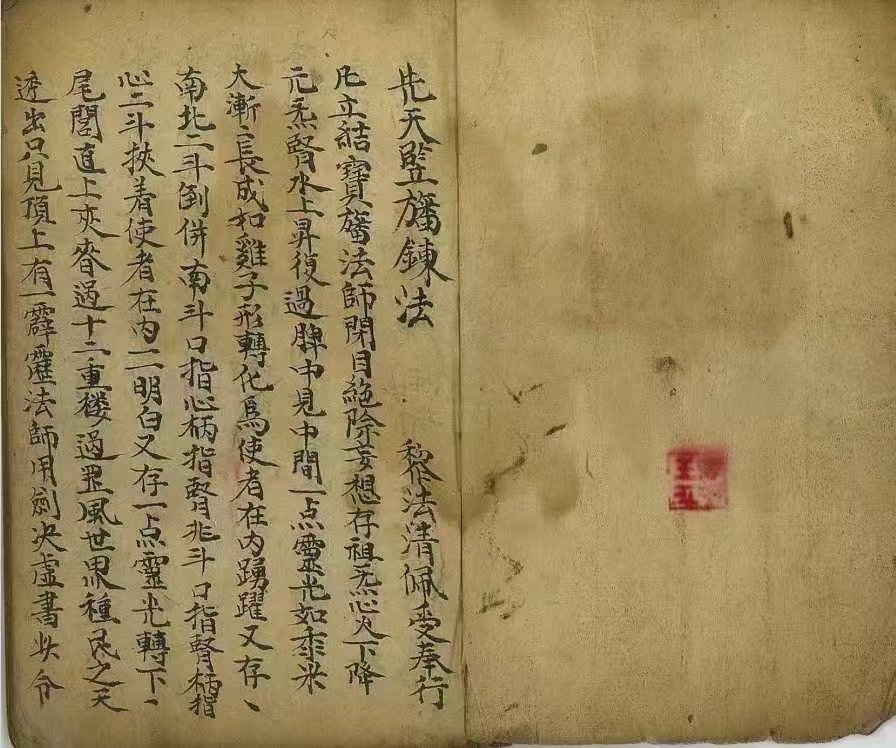 先天豎旛鍊法 黎法清佩受奉行
凡立結寶旛法師閉目絶除妄想存祖炁心火下降
元炁腎水上昇復過脾中見中間一点靈光如黍米
大漸〻長成如雞子形轉化爲使者在内踴躍又存、
南北二斗倒併南斗口指心柄指腎北斗口指腎柄指
心二斗挾着使者在内二明白又存一点靈光轉下、
尾閭直上夾脊過十二重楼過罡風世界種民之天
透出只見頂上有一霹靂法師用劍决虚書此令